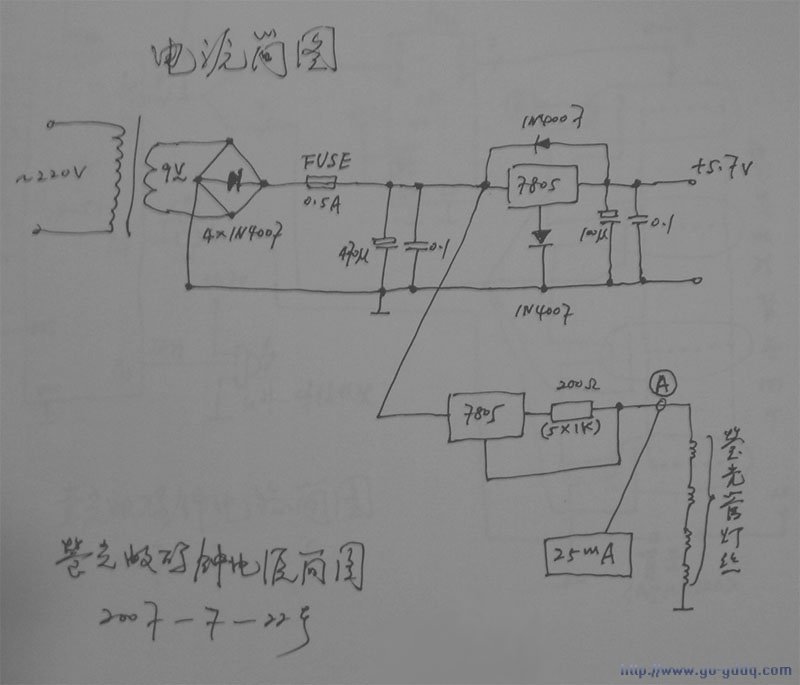 电源简图
~220V
9V
4×1N4007
FUSE
0.5A
470μ
0.1
1N4007
7805
1N4007
100μ
0.1
+5.7V
7805
200Ω
(5×1K)
A
25mA
荧光管灯丝
荧光数码钟电源简图
2007-7-22号
http://www.go-gddq.com